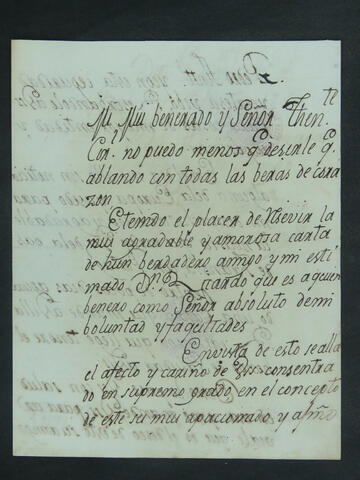 Mi Mu benerado y Señor Then.te
Cor. no puedo menos q desirle q.
ablando con todas las beras de cora
zon
Etenido el placer de resevir la
mui agradable y amorosa carta
de hun berdadero amigo y mi esti
mado Dn. que es a quien
benero como Señor absoluto de mi
boluntad y facultades
En vista de esto se alla
el afecto y cariño de consentra
do en supremo grado en el concepto
de este su mui apacionado y afmo